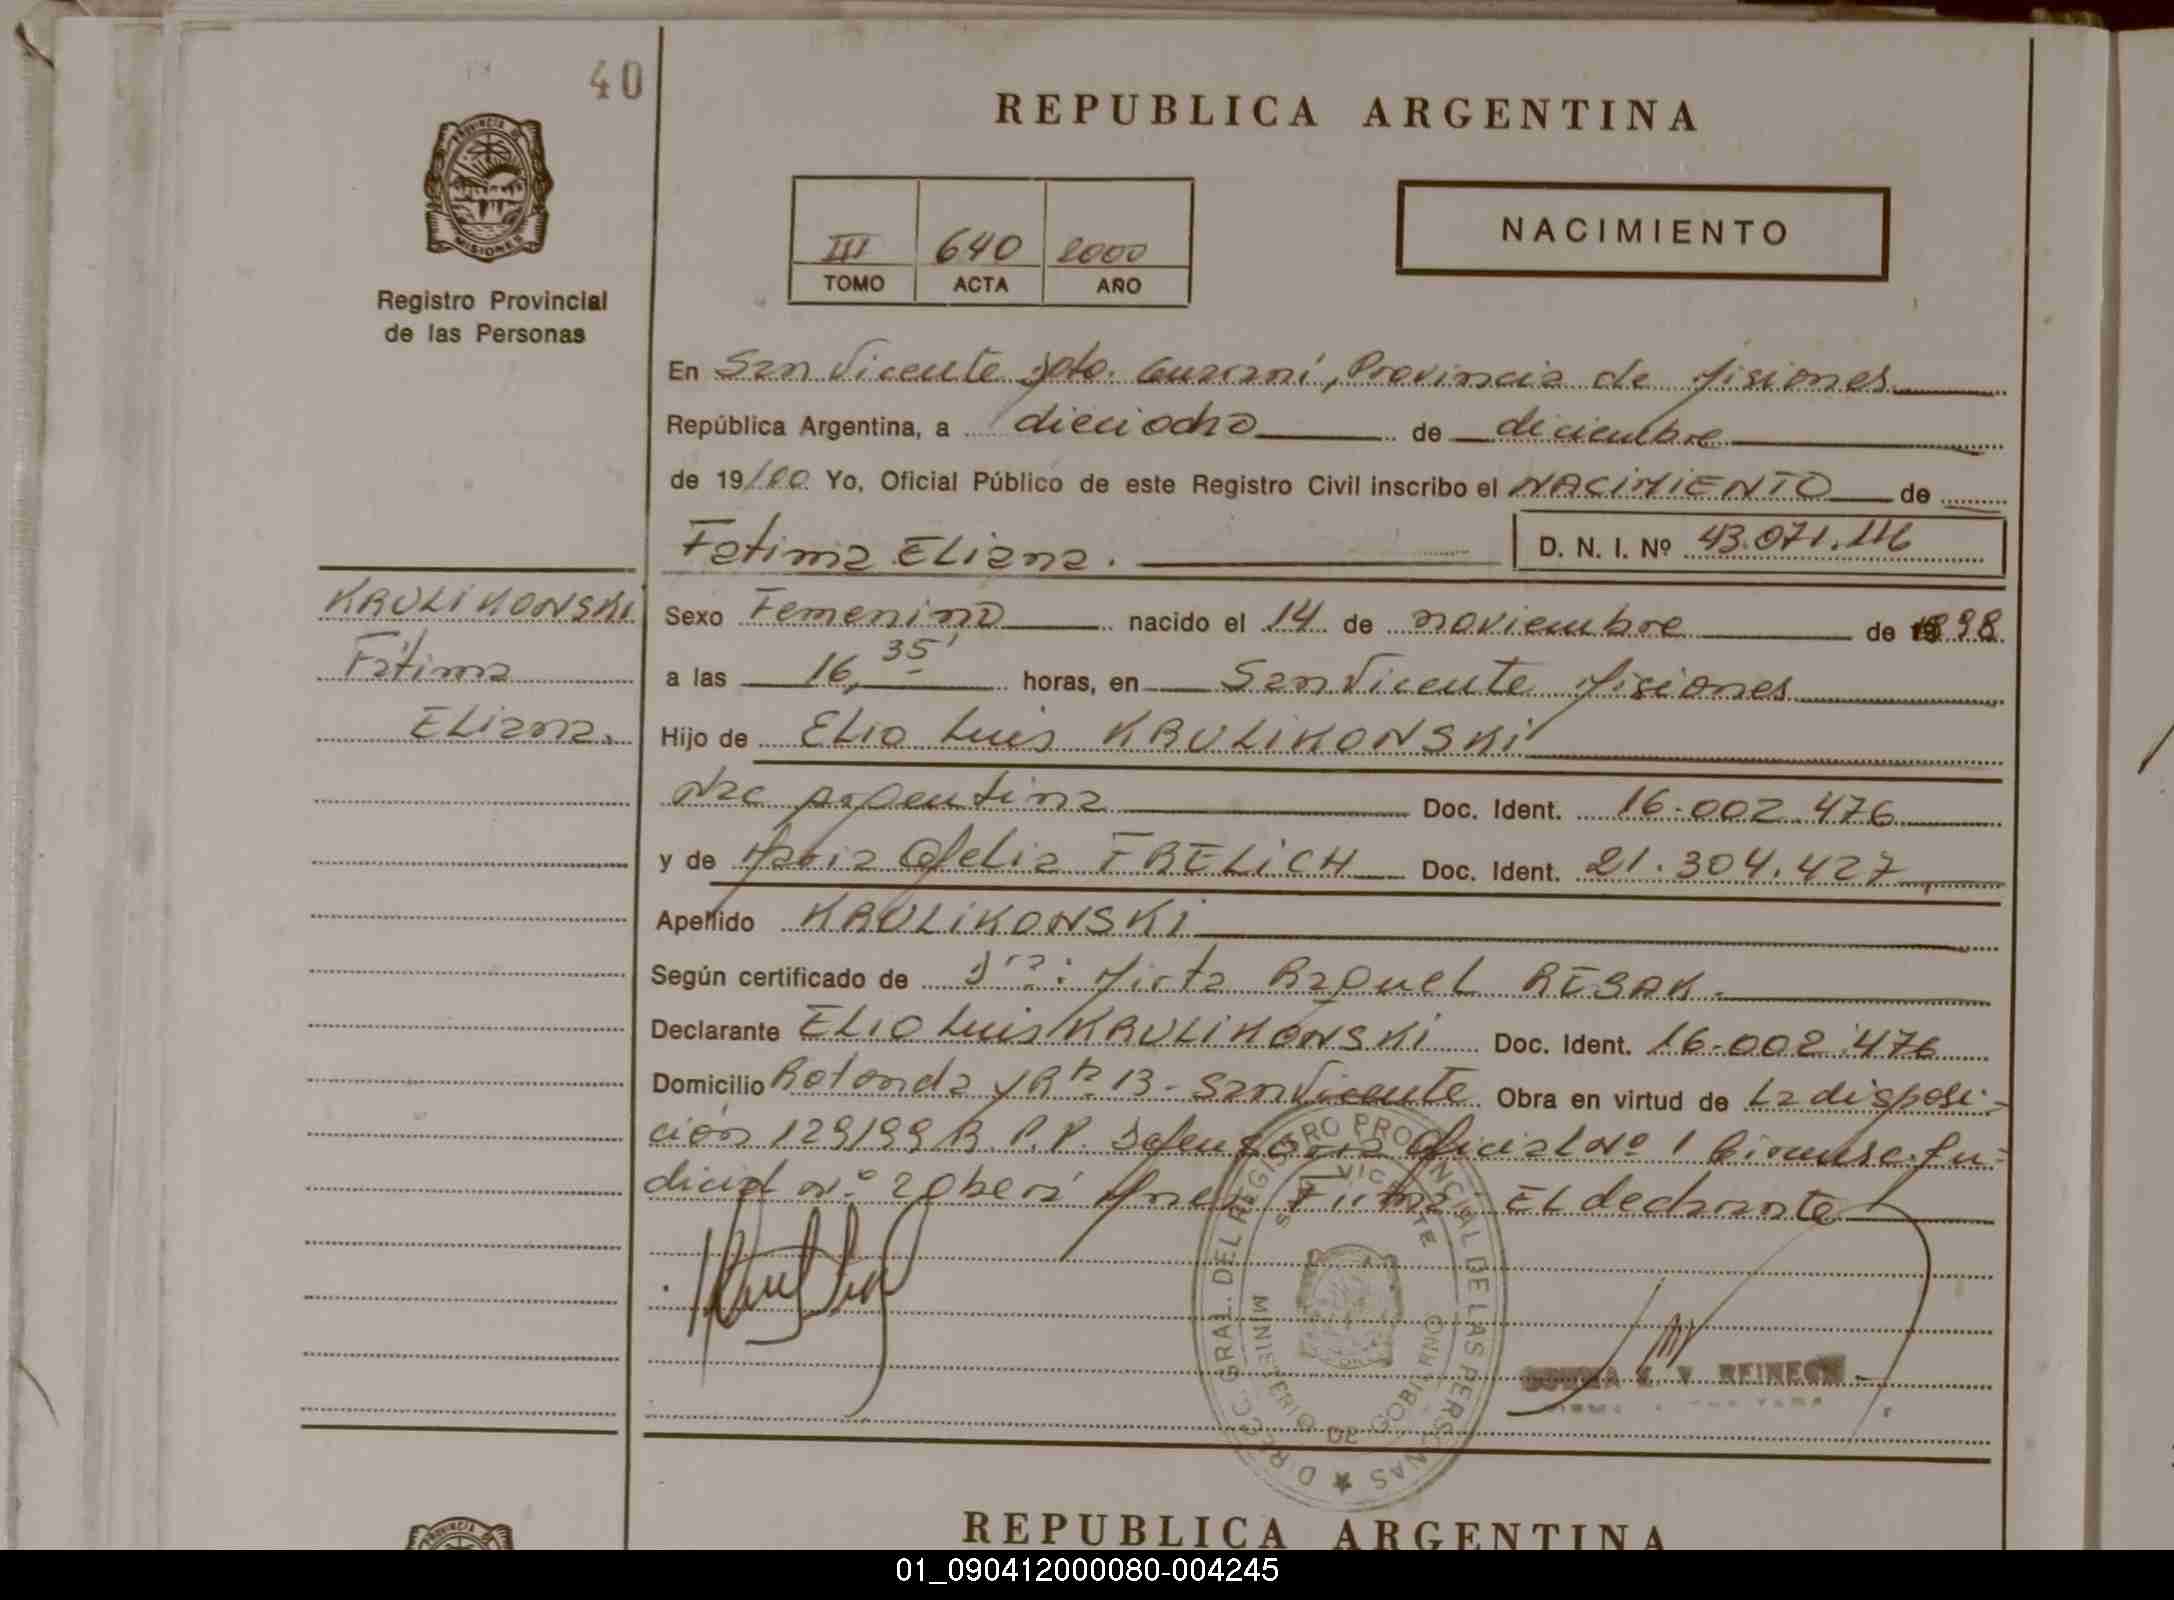 40
PROVINCIA DE
MISIONES
Registro Provincial
de las Personas
REPUBLICA ARGENTINA
III 640 2000
TOMO ACTA AÑO
NACIMIENTO
En San Vicente Dpto. Guaraní, Provincia de Misiones
República Argentina, a dieciocho de diciembre
de 19/00 Yo, Oficial Público de este Registro Civil inscribo el NACIMIENTO de
Fatima Eliana.
D. N. I. Nº 43.071.116
KRULIKOWSKI
Fátima
Eliana.
Sexo Femenino nacido el 14 de noviembre de 1998
a las 16,35' horas, en San Vicente Misiones
Hijo de Elio Luis KRULIKOWSKI
Nac argentina Doc. Ident. 16.002.476
y de Maria Ofelia FRELICH Doc. Ident. 21.304.427
Apellido KRULIKOWSKI
Según certificado de Dra: Mirta Raquel RESAK.
Declarante Elio Luis KRULIKOWSKI Doc. Ident. 16.002.476
Domicilio Rotonda y Rta 13 - San Vicente Obra en virtud de La disposi-
ción 129/99 R.P.P. Defensoria Oficial Nº 1 Circunsc. Ju-
dicial Nº 2 Oberá Mnes Firma El declarante
DIRECC. GRAL. DEL REGISTRO PROVINCIAL DE LAS PERSONAS
SAN VICENTE
MINISTERIO DE GOBIERNO
REINECK
REPUBLICA ARGENTINA
01_090412000080-004245